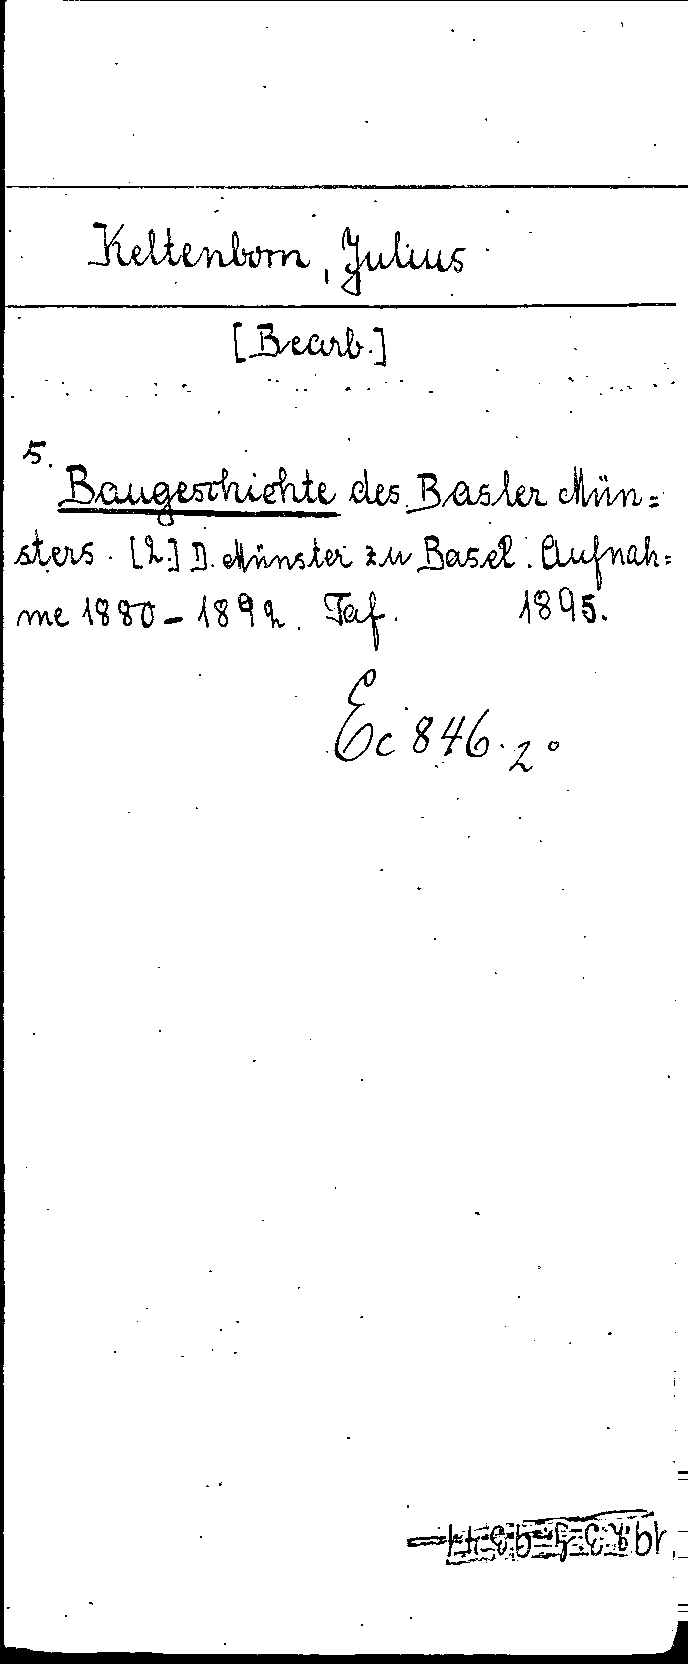 Keltenborn, Julius
[Bearb.]
5.
Baugeschichte des Basler Mün=
sters. [2.] D. Münster zu Basel. Aufnah=
me 1880-1892. Taf. 1895.
Ec 846. 2°